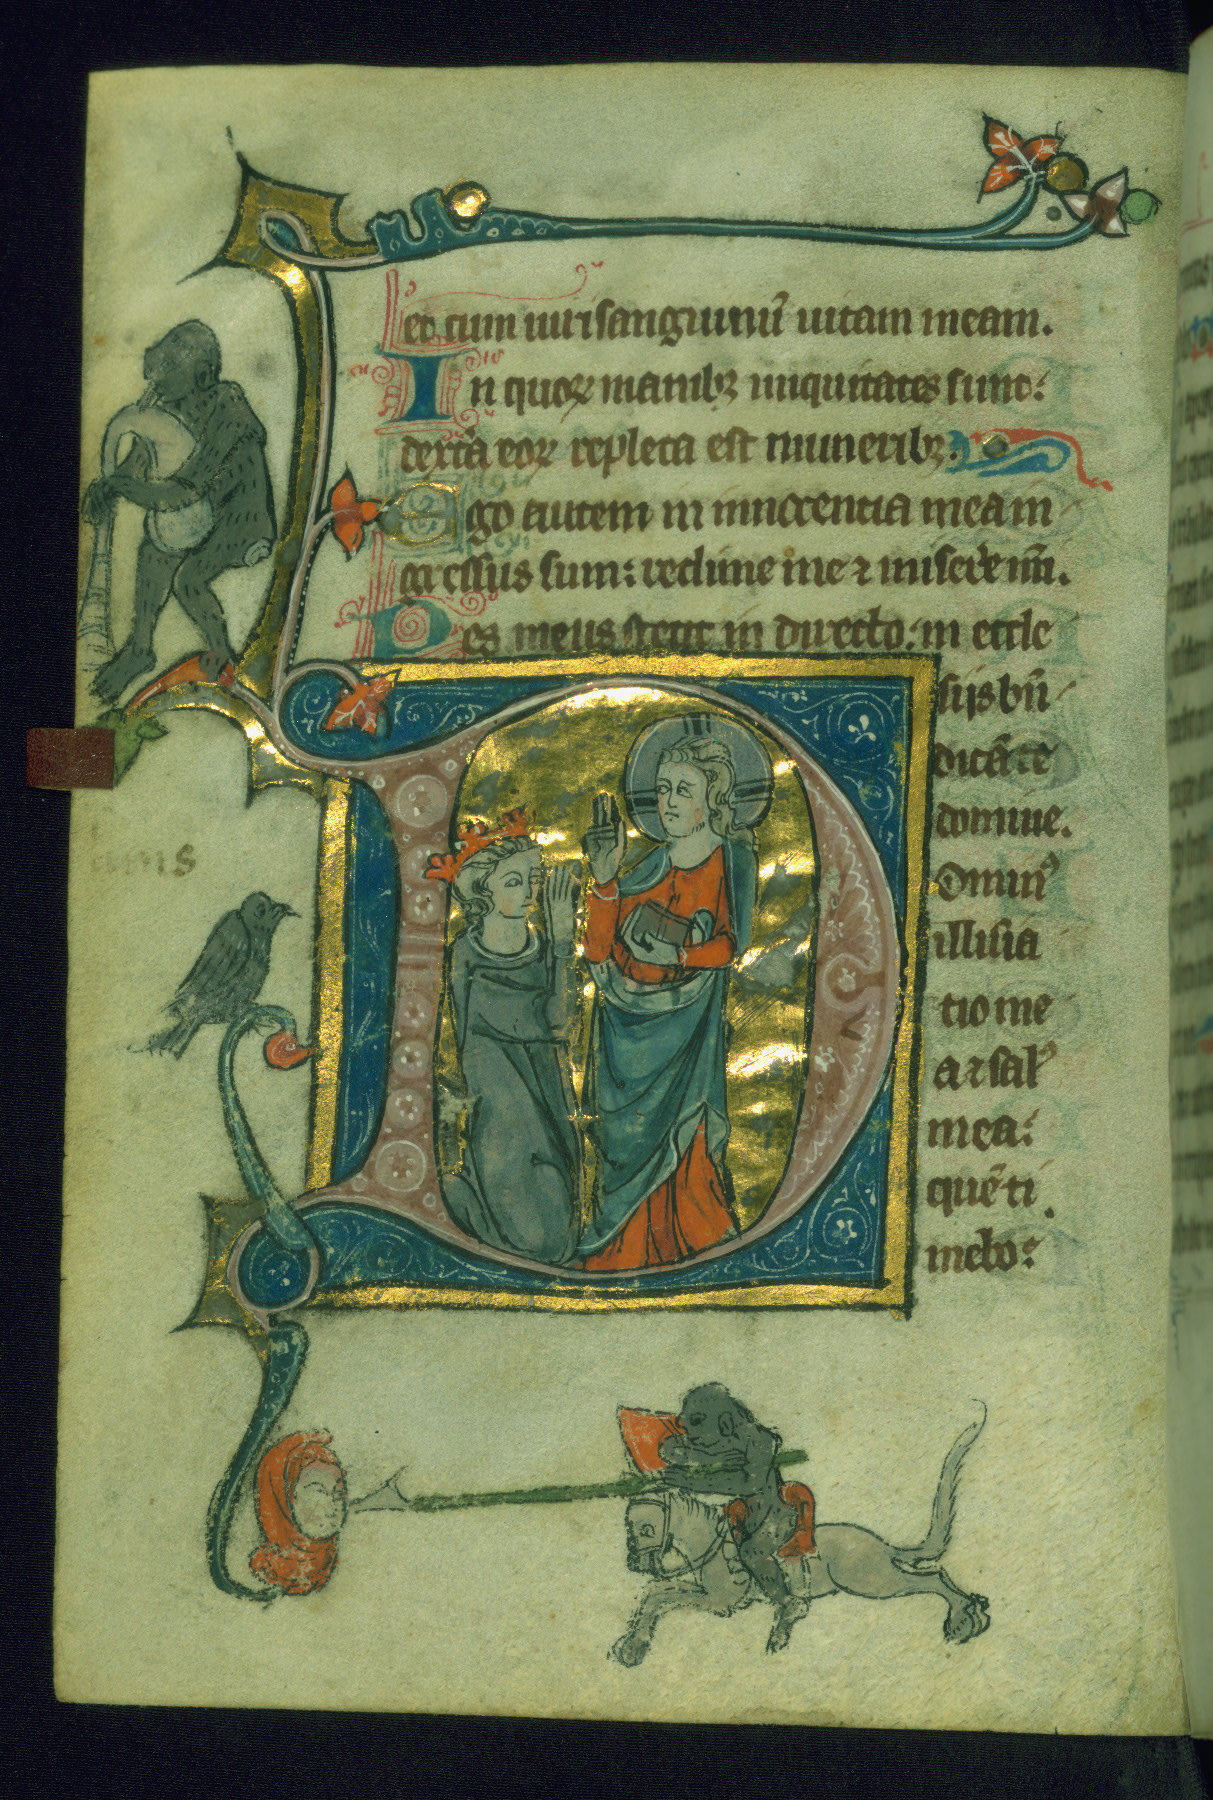 et cum uirisanguinū uitam meam.
In quoꝝ manibꝫ iniquitates sunt:
dext̾a eoꝝ repleta est muneribꝫ.
Ego autem in innocentia mea in
gressus sum: redime me ⁊ misere m̄i.
Pes meus stetit in directo: in eccle
sijs bn̄
dicā te
domine.
Dominꝰ
illu̅ia
tio me
a ⁊ salꝰ
mea:
quē ti
mebo: